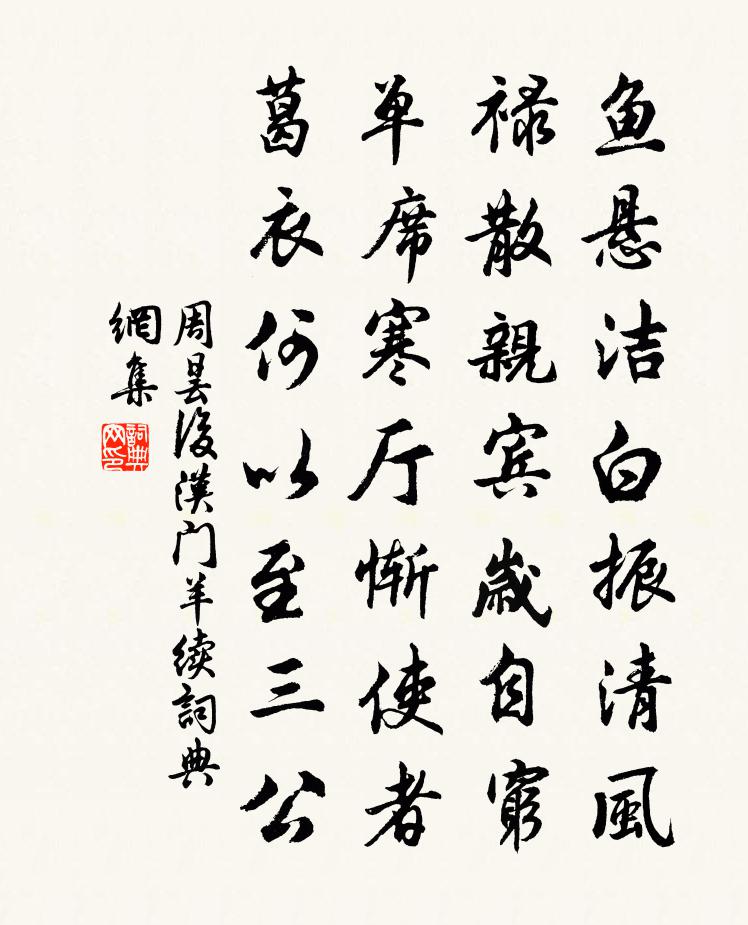 鱼悬洁白振清風
禄散親宾歲自窮
单席寒厅惭使者
葛衣何以至三公
周曇後漢门羊续詞典
網集
詞典网印